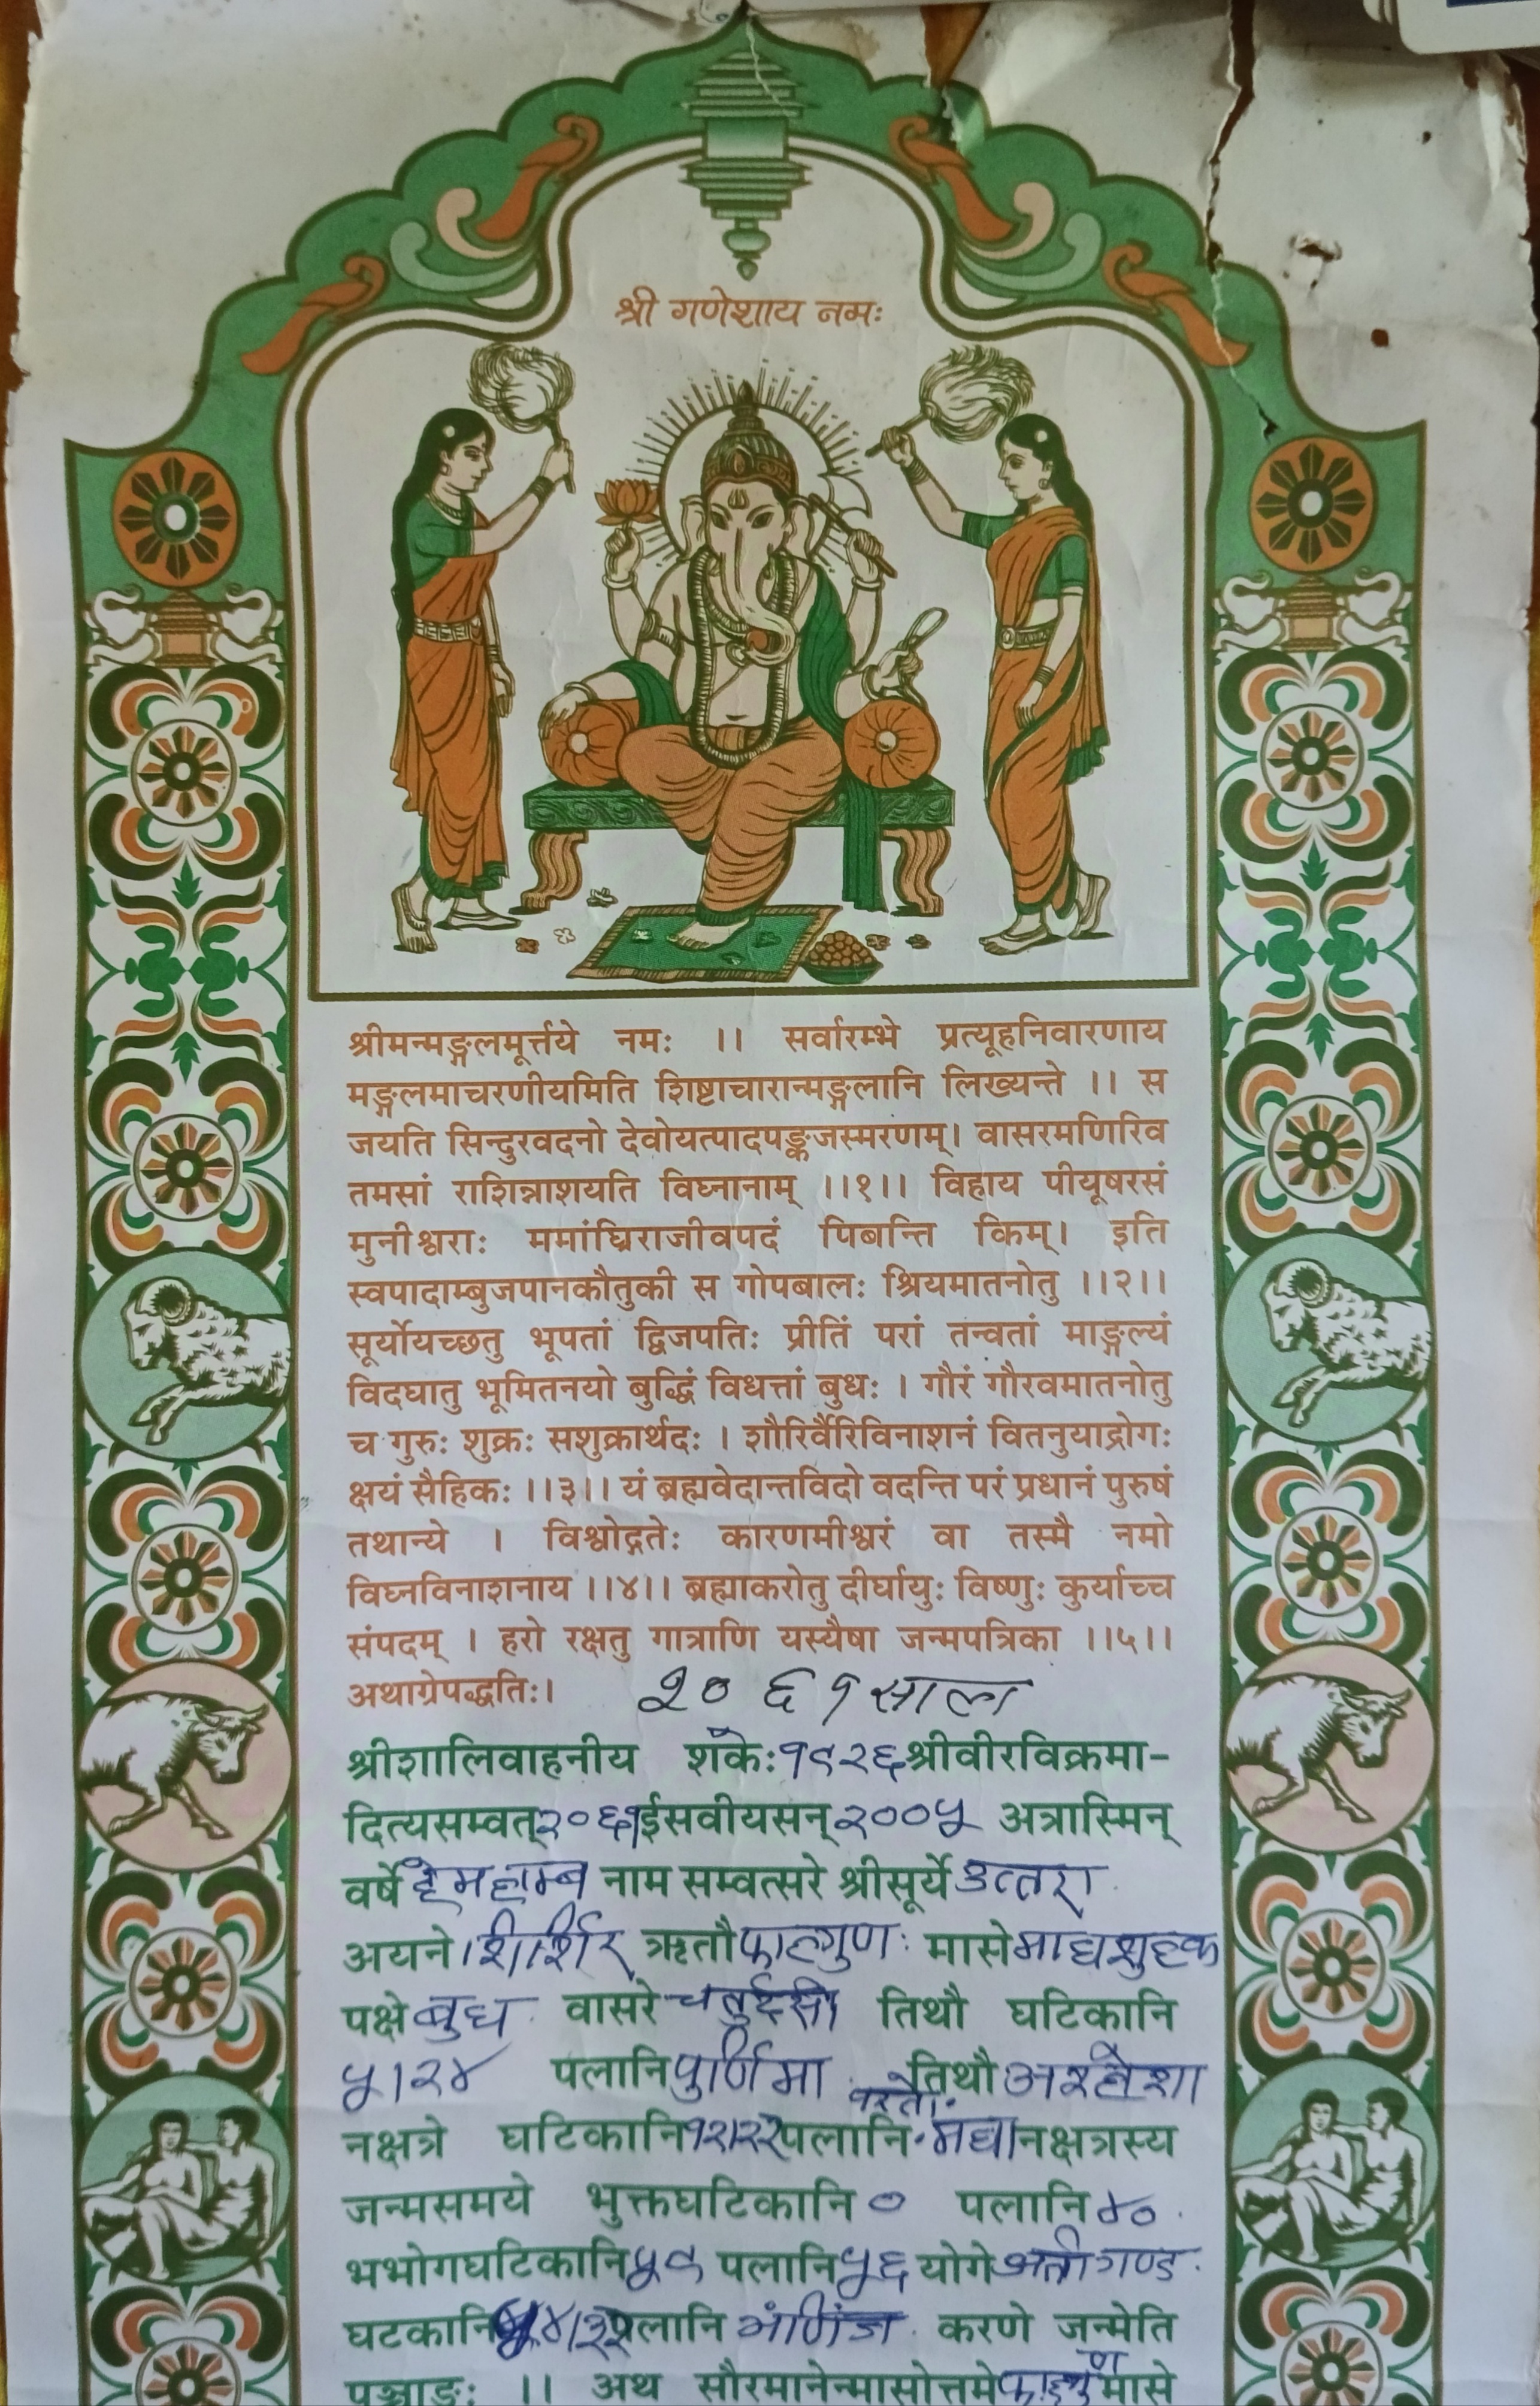 श्री गणेशाय नमः
श्रीमन्मङ्गलमूर्त्तये नमः ।। सर्वारम्भे प्रत्यूहनिवारणाय
मङ्गलमाचरणीयमिति शिष्टाचारान्मङ्गलानि लिख्यन्ते ।। स
जयति सिन्दुरवदनो देवोयत्पादपङ्कजस्मरणम्। वासरमणिरिव
तमसां राशिन्नाशयति विघ्नानाम् ।।१।। विहाय पीयूषरसं
मुनीश्वराः ममांघ्रिराजीवपदं पिबन्ति किम्। इति
स्वपादाम्बुजपानकौतुकी स गोपबालः श्रियमातनोतु ।।२।।
सूर्योयच्छतु भूपतां द्विजपतिः प्रीतिं परां तन्वतां माङ्गल्यं
विदघातु भूमितनयो बुद्धिं विधत्तां बुधः । गौरं गौरवमातनोतु
च गुरुः शुक्रः सशुक्रार्थदः । शौरिर्वैरिविनाशनं वितनुयाद्रोगः
क्षयं सैहिकः ।।३।। यं ब्रह्मवेदान्तविदो वदन्ति परं प्रधानं पुरुषं
तथान्ये । विश्वोद्गतेः कारणमीश्वरं वा तस्मै नमो
विघ्नविनाशनाय ।।४।। ब्रह्माकरोतु दीर्घायुः विष्णुः कुर्याच्च
संपदम् । हरो रक्षतु गात्राणि यस्यैषा जन्मपत्रिका ।।५।।
अथाग्रेपद्धतिः। २०६१ साल
श्रीशालिवाहनीय शकेः १९२६ श्रीवीरविक्रमा-
दित्यसम्वत् २०६१ ईसवीयसन् २००५ अत्रास्मिन्
वर्षे हेमहाम्ब नाम सम्वत्सरे श्रीसूर्ये उत्तरा
अयने शिशिर ऋतौ फाल्गुण मासे माघ शुक्ल
पक्षे बुध वासरे चतुर्दसी तिथौ घटिकानि
५।२४ पलानि पुर्णिमा तिथौ अश्लेशा
नक्षत्रे घटिकानि पलानि मघा नक्षत्रस्य
जन्मसमये भुक्तघटिकानि ० पलानि ४०
भभोगघटिकानि ५९ पलानि ५६ योगे अतीगण्ड
घटकानि पलानि करणे जन्मेति
पञ्चाङ्गः ।। अथ सौरमानेन्मासोत्तमे फाल्गुण मासे